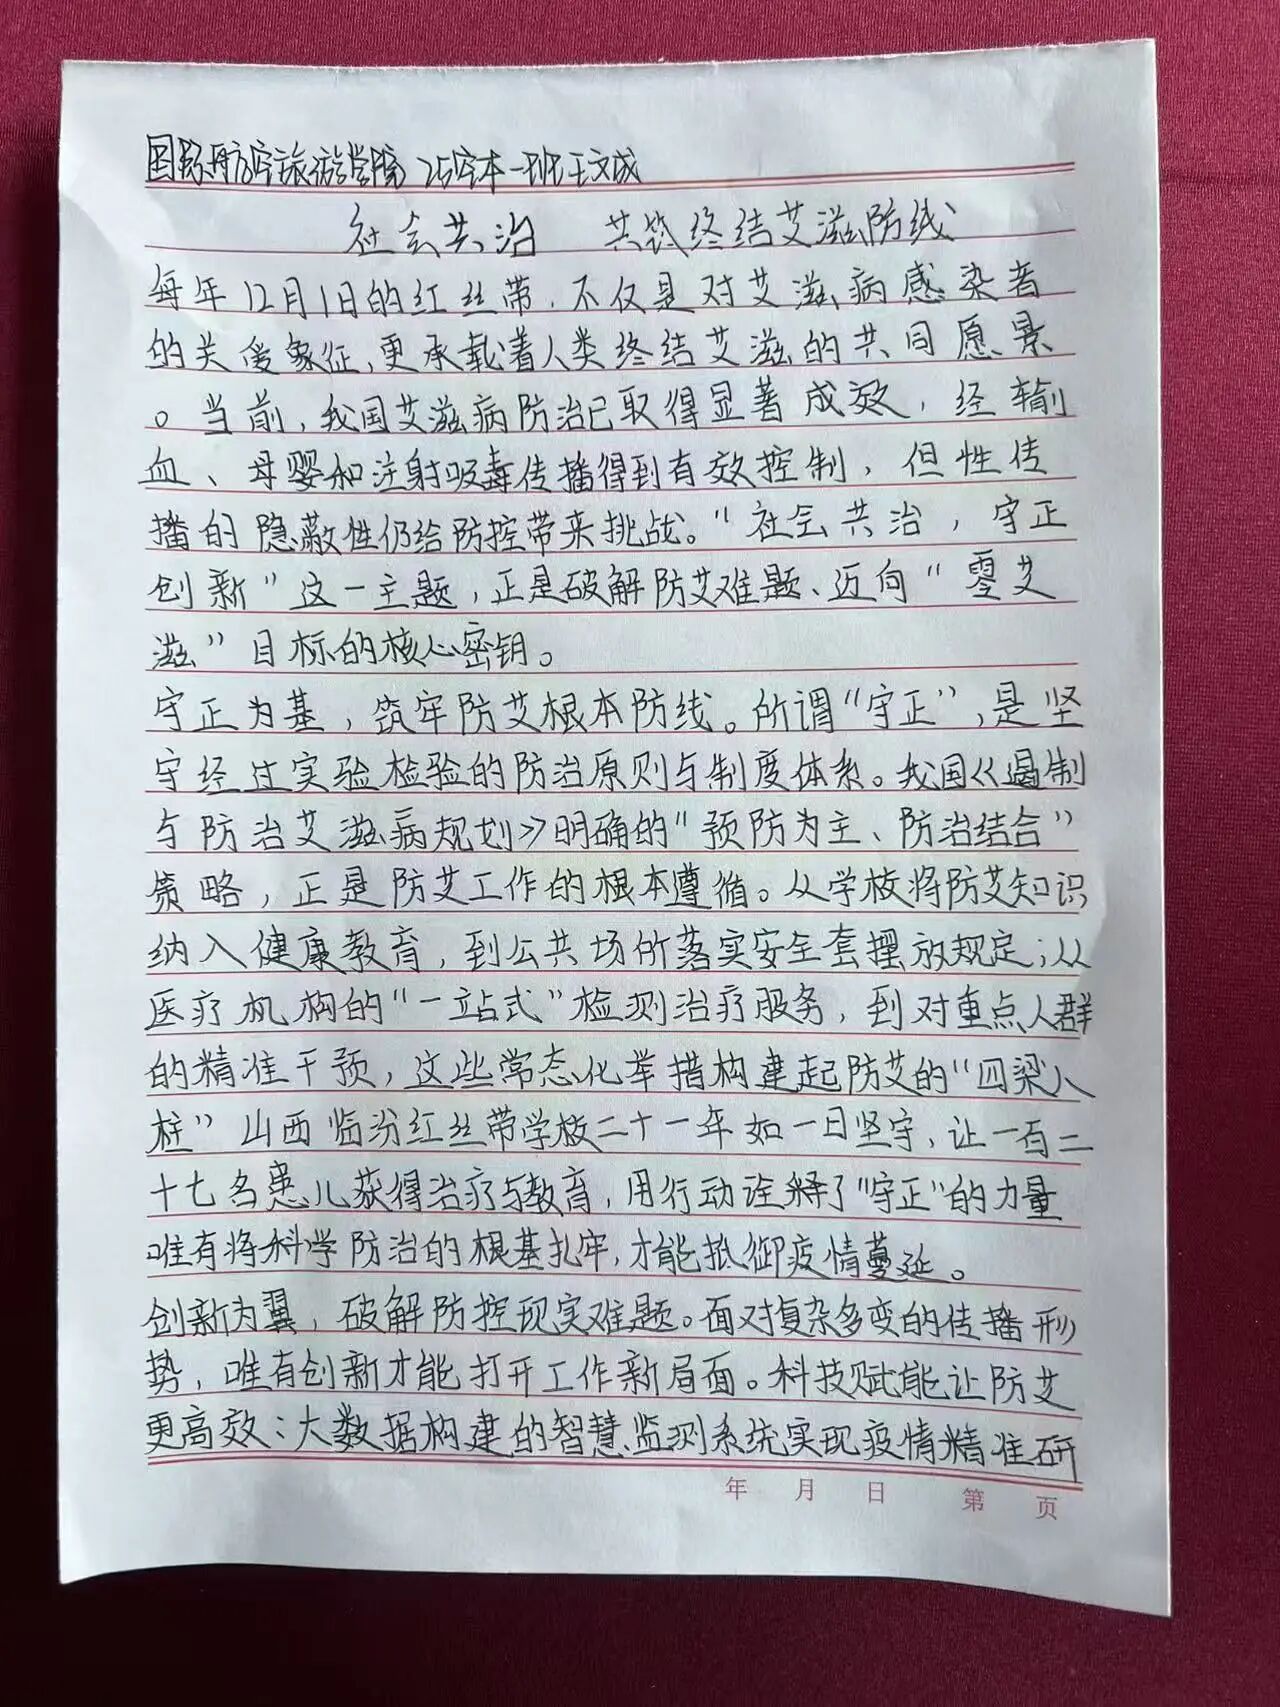 国际航空旅游学院 25空本一班王文成
社会共治 共筑终结艾滋防线
每年12月1日的红丝带，不仅是对艾滋病感染者
的关爱象征，更承载着人类终结艾滋的共同愿景
。当前，我国艾滋病防治已取得显著成效，经输
血、母婴和注射吸毒传播得到有效控制，但性传
播的隐蔽性仍给防控带来挑战。“社会共治，守正
创新”这一主题，正是破解防艾难题、迈向“零艾
滋”目标的核心密钥。
守正为基，筑牢防艾根本防线。所谓“守正”，是坚
守经过实验检验的防治原则与制度体系。我国《遏制
与防治艾滋病规划》明确的“预防为主、防治结合”
策略，正是防艾工作的根本遵循。从学校将防艾知识
纳入健康教育，到公共场所落实安全套摆放规定；从
医疗机构的“一站式”检测治疗服务，到对重点人群
的精准干预，这些常态化举措构建起防艾的“四梁八
柱”山西临汾红丝带学校二十一年如一日坚守，让一百二
十七名患儿获得治疗与教育，用行动诠释了“守正”的力量
唯有将科学防治的根基扎牢，才能抵御疫情蔓延。
创新为翼，破解防控现实难题。面对复杂多变的传播形
势，唯有创新才能打开工作新局面。科技赋能让防艾
更高效：大数据构建的智慧监测系统实现疫情精准研
年 月 日 第 页